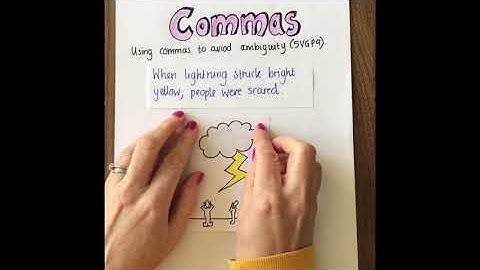 Commas
Using commas to aviod ambiguity (5VGP9)
When lightning struck bright
yellow, people were scared.